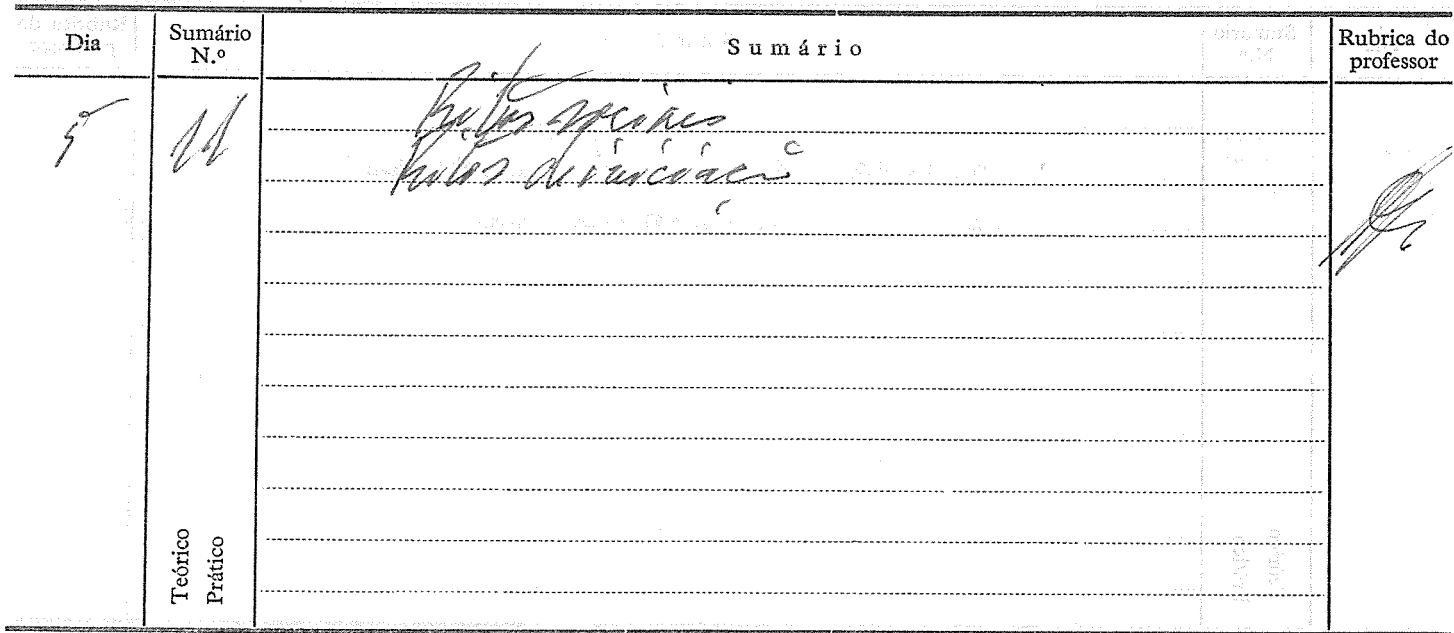 Dia Sumário N.º Sumário Rubrica do professor
5 11 Ritos sociais
Ritos de iniciação
Teórico
Prático